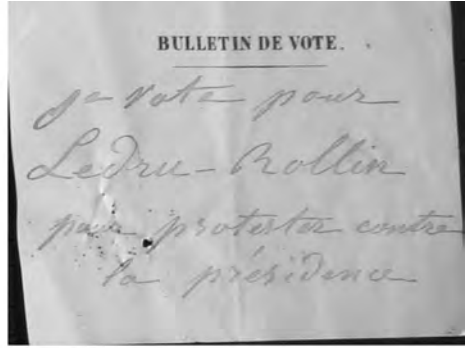 BULLETIN DE VOTE.
je vote pour
Ledru-Rollin
pour protester contre
la présidence